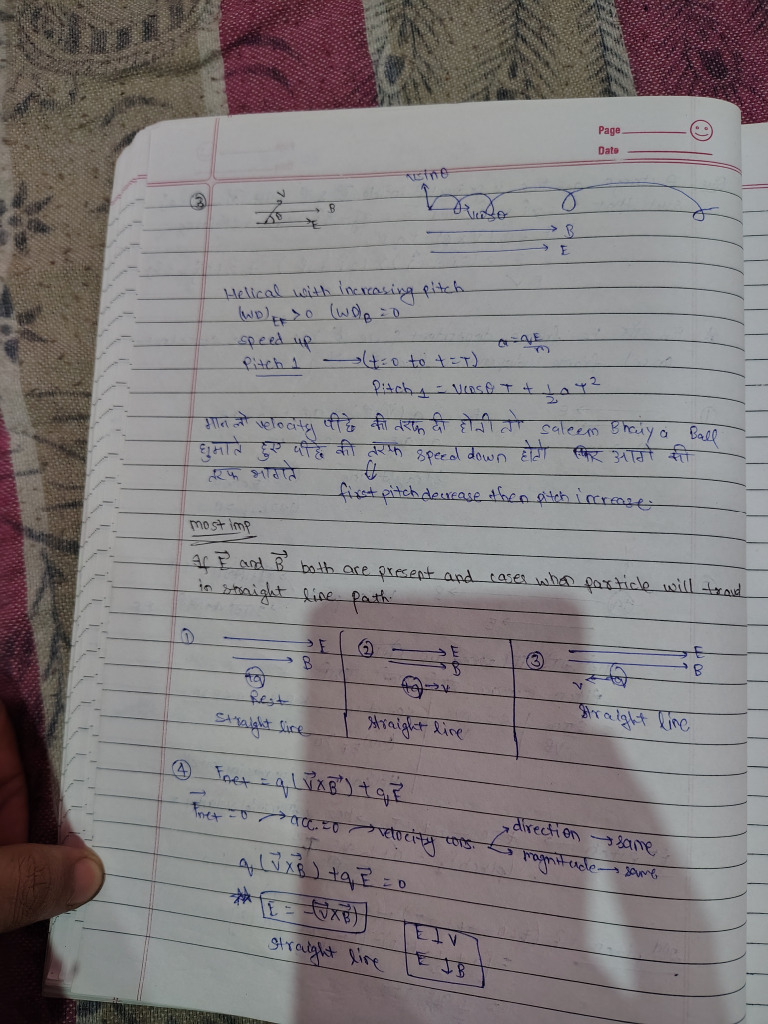 Page
Date
③
V
θ
B
E
vsinθ
vcosθ
B
E
Helical with increasing pitch
(WD)EF >0 (WD)B = 0
speed up
a = qE/m
Pitch 1 ⟶ (t=0 to t=T)
Pitch1 = vcosθ T + 1/2 a T²
मान लो velocity पीछे की तरफ दी होती तो saleem Bhaiya Ball
घुमाते हुए पीछे की तरफ speed down होती फिर आगे की
तरफ भागते
⇓
first pitch decrease then pitch increase.
most imp
If E⃗ and B⃗ both are present and cases when particle will travel
in straight line path.
① E
B
+q
Rest
straight line
② E
B
+q → v
straight line
③ E
B
v ← +q
straight line
④ Fnet = q(v⃗×B⃗) + qE⃗
F⃗net = 0 → acc.=0 → velocity cons.
direction → same
magnitude → same
q(v⃗×B⃗) + qE⃗ = 0
E = -(v⃗×B⃗)
straight line
E ⊥ V
E ⊥ B